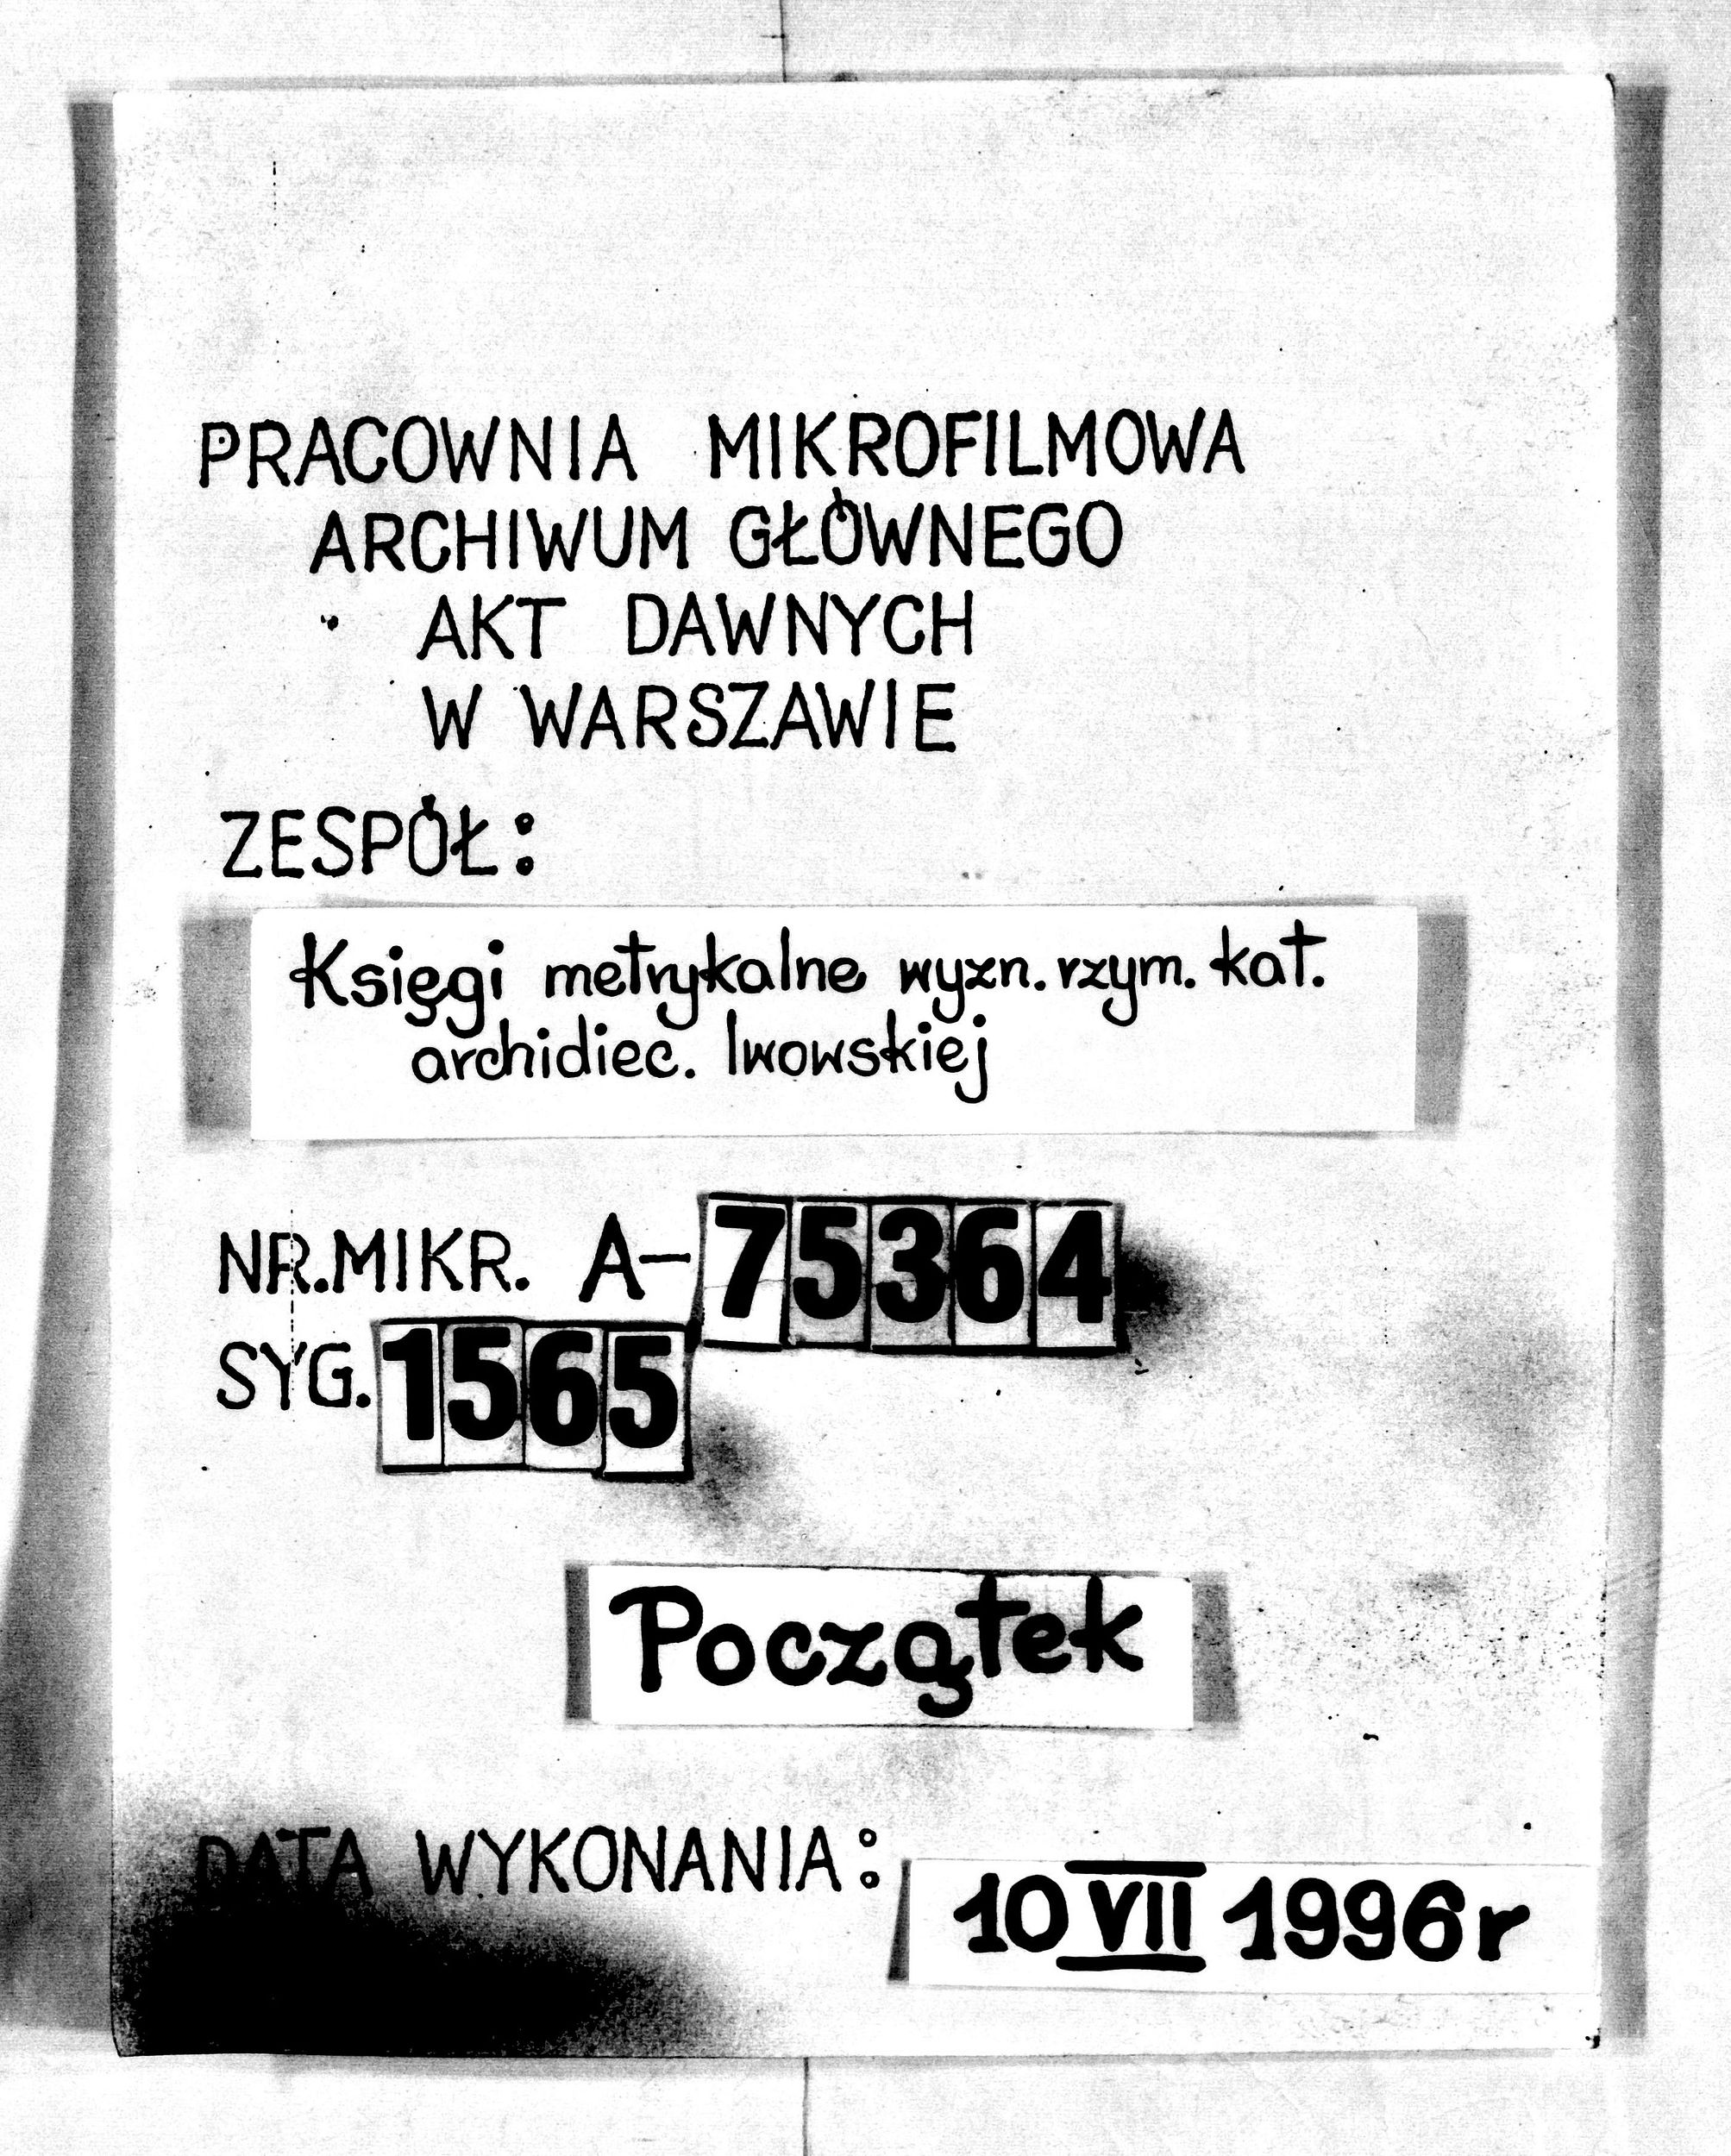 PRACOWNIA MIKROFILMOWA
ARCHIWUM GŁÓWNEGO
AKT DAWNYCH
W WARSZAWIE
ZESPÓŁ:
Księgi metrykalne wyzn. rzym. kat.
archidiec. lwowskiej
NR.MIKR. A-75364
SYG. 1565
Początek
DATA WYKONANIA: 10 VII 1996r